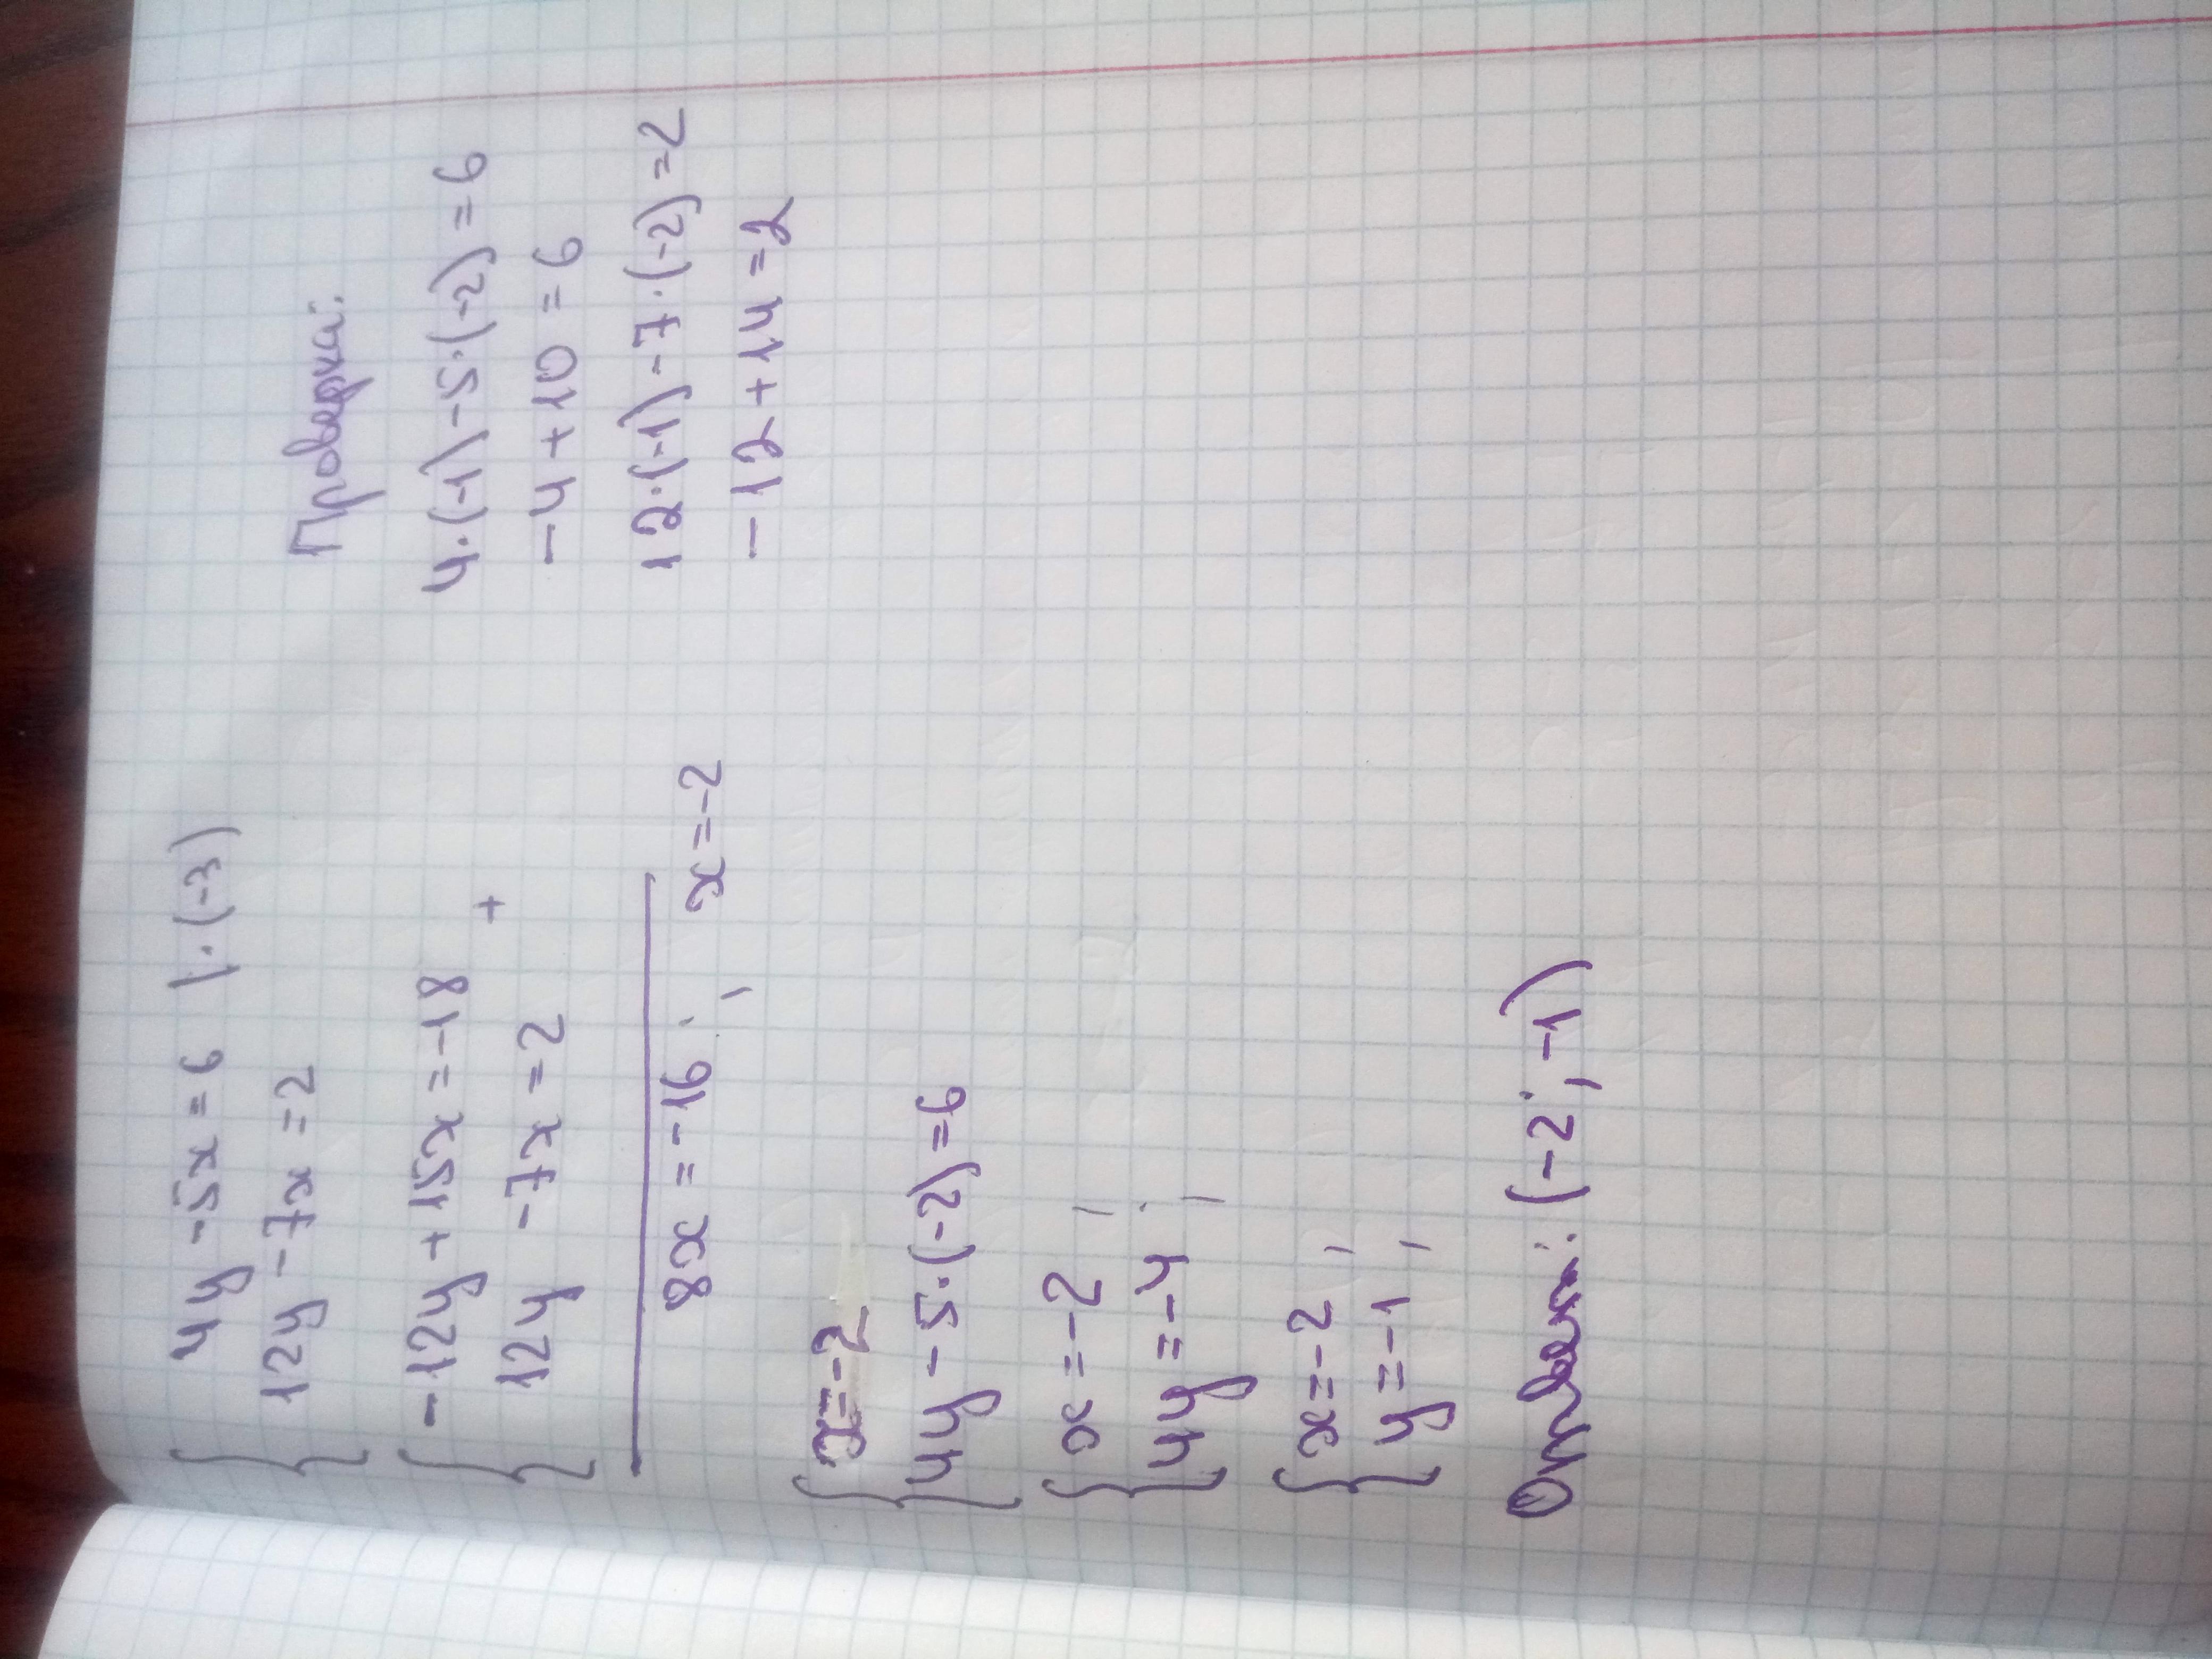 4y -5x = 6 |·(-3)
12y -7x = 2
-12y + 15x = -18
+
12y -7x = 2
8x = -16 ; x = -2
x = -2
4y - 5·(-2) = 6
x = -2,
4y = -4;
x = -2,
y = -1,
Ответ: (-2; -1)
Проверка:
4·(-1) -5·(-2) = 6
-4 + 10 = 6
12·(-1) -7·(-2) = 2
-12 + 14 = 2